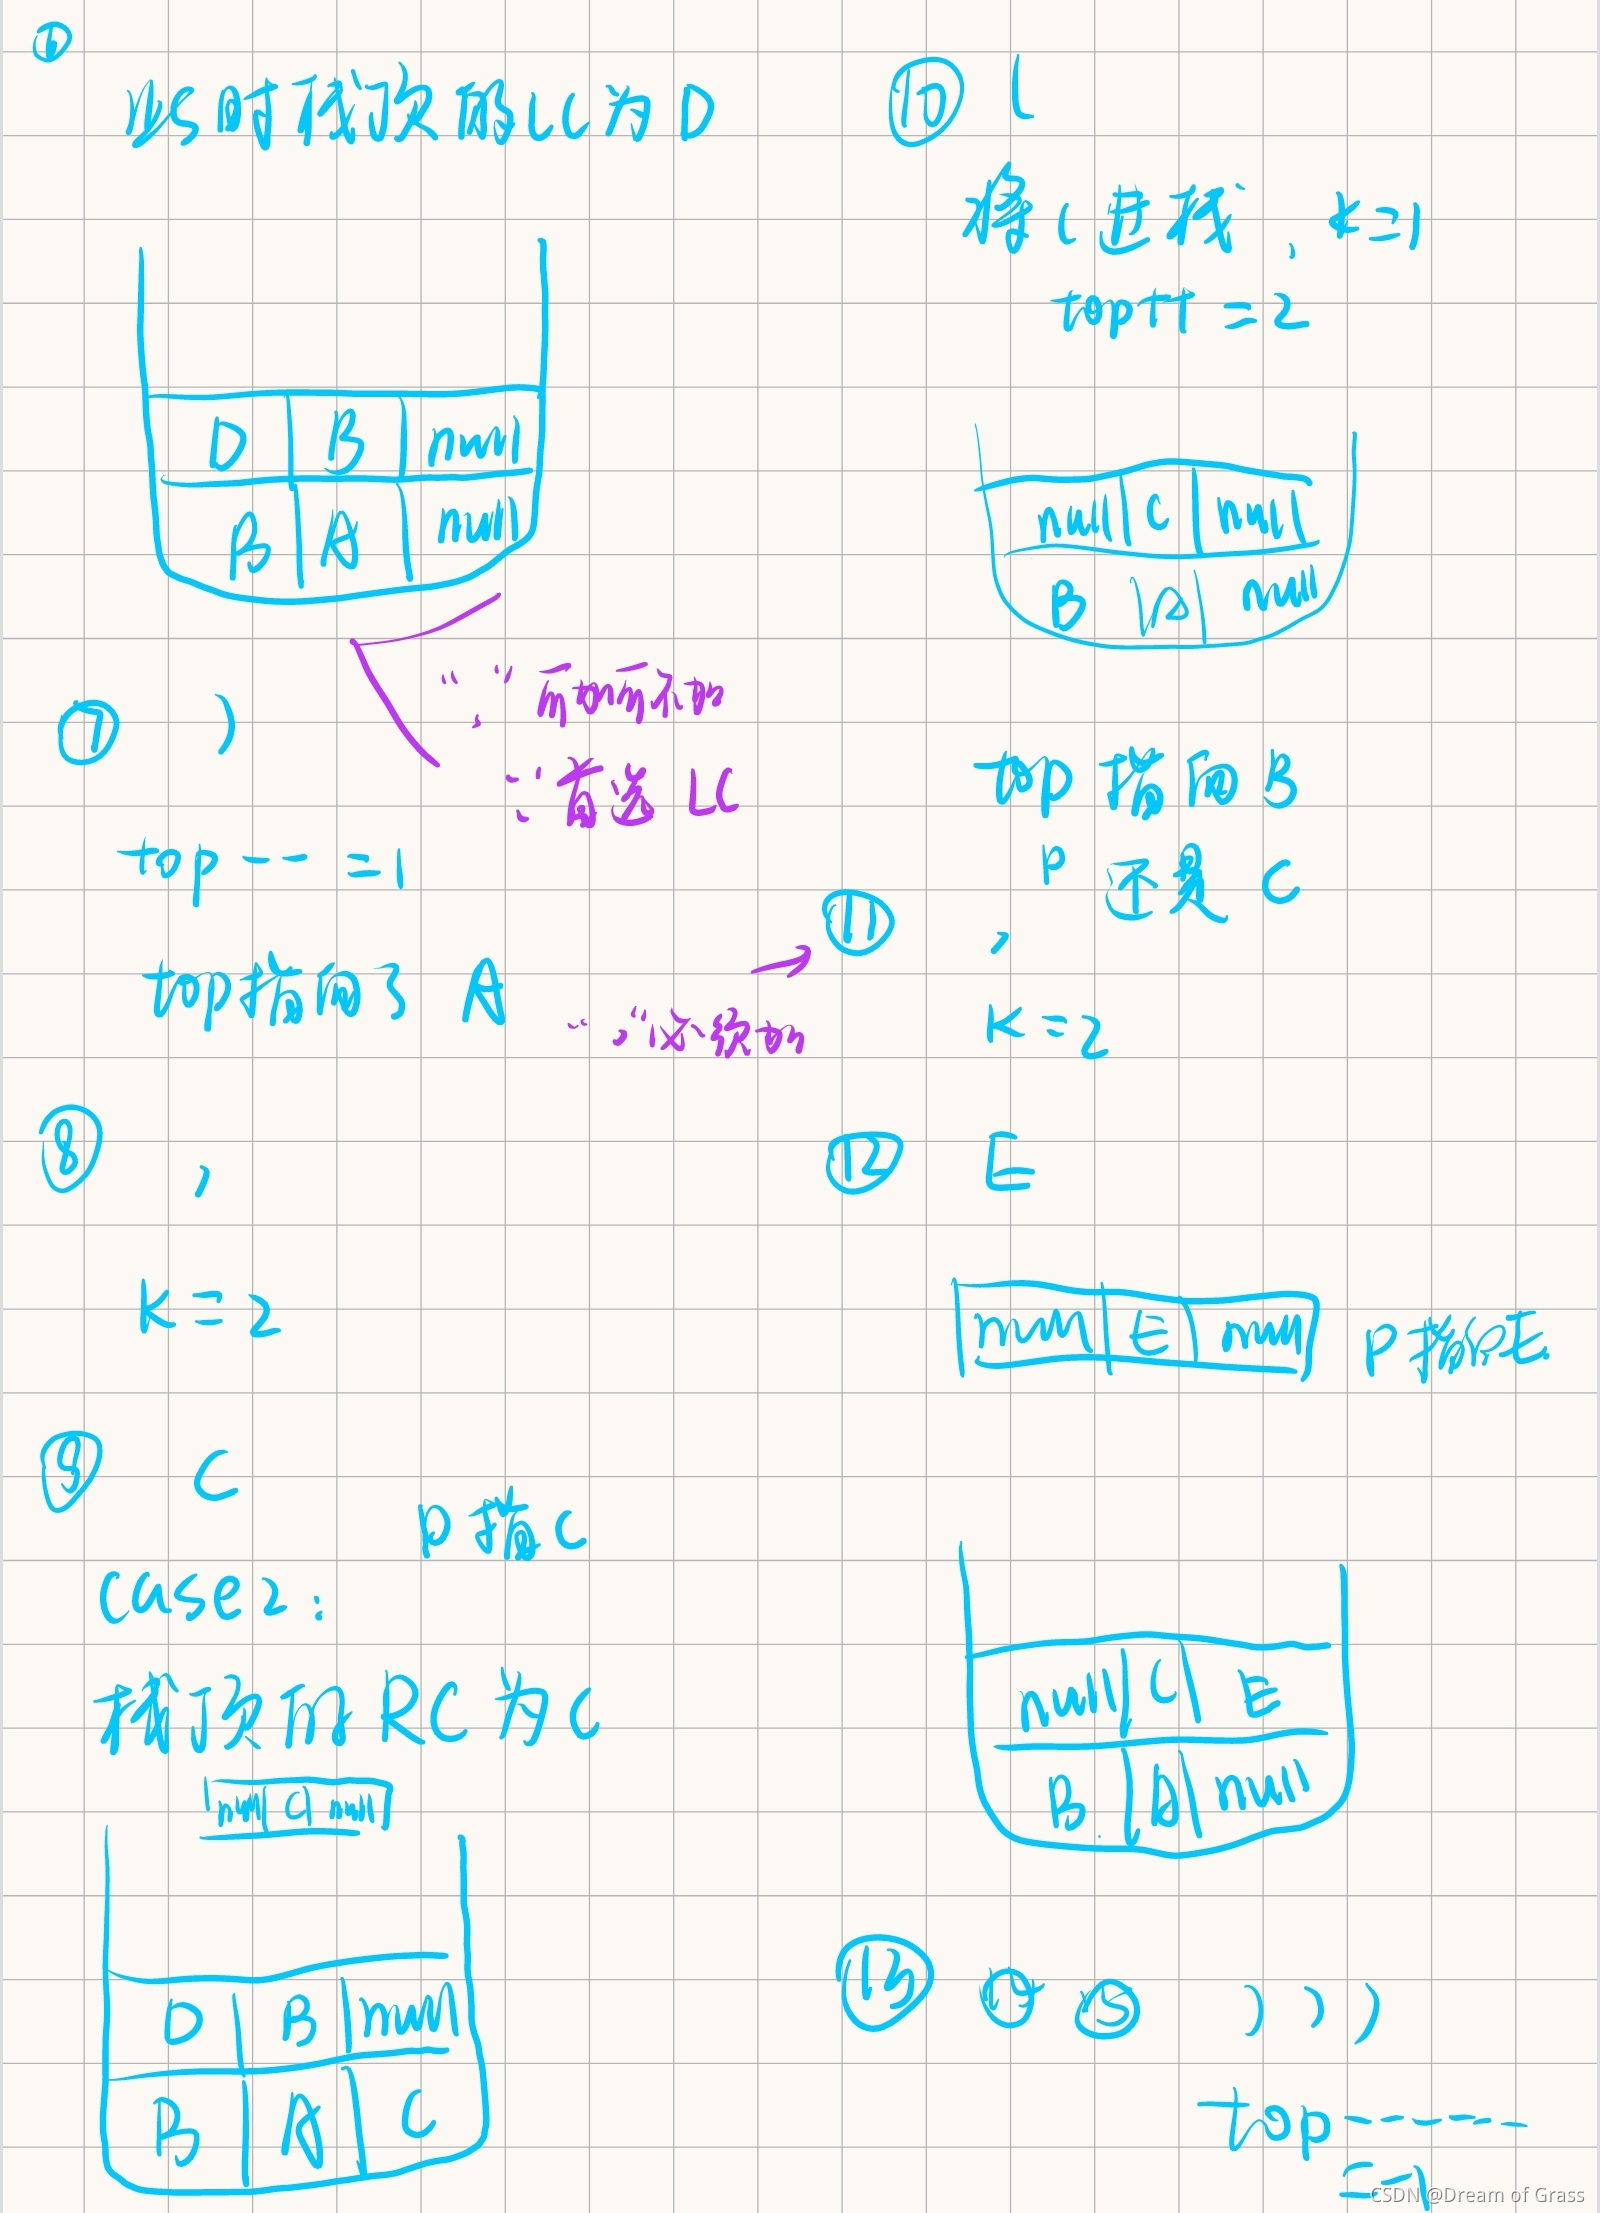 ⑥
此时栈顶的LC为D
D B null
B A null
“,”可加可不加
∵首选 LC
⑦ )
top-- =1
top指向了 A
⑧ ,
K=2
⑨ C
P指C
case2:
栈顶的RC为C
null C null
D B null
B A C
⑩ (
将C进栈, k=1
top++ =2
null C null
B A null
top 指向B
P 还是 C
“,”必须加 →
⑪ ,
K=2
⑫ E
null E null P指向E
null C E
B A null
⑬ ⑭ ⑮ )))
top------
=-1
CSDN @Dream of Grass